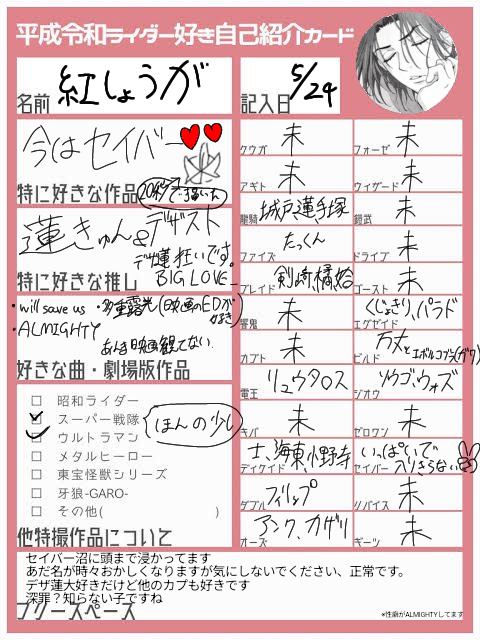 平成令和ライダー好き自己紹介カード
名前 紅しょうが
記入日 5/24
今はセイバー
特に好きな作品
蓮きゅん&デザスト
デザ蓮狂いです。
BIG LOVE
特に好きな推し
・will save us ・多重露光(映画のEDが好き)
・ALMIGHTY
あんま映画観てない
好きな曲・劇場版作品
昭和ライダー
スーパー戦隊
ウルトラマン
ほんの少し
メタルヒーロー
東宝怪獣シリーズ
牙狼-GARO-
その他( )
他特撮作品について
クウガ 未
アギト 未
龍騎 城戸蓮手塚
ファイズ たっくん
ブレイド 剣崎橘始
響鬼 未
カブト 未
電王 リュウタロス
キバ 未
ディケイド 士、海東、小野寺
ダブル フィリップ
オーズ アンク、カザリ
フォーゼ 未
ウィザード 未
鎧武 未
ドライブ 未
ゴースト 未
エグゼイド くじょきり、パラド
ビルド 万丈とエボルコブラ(ガワ)
ジオウ ソウゴ、ウォズ
ゼロワン 未
セイバー いっぱいで入りきらない
リバイス 未
ギーツ 未
セイバー沼に頭まで浸かってます
あだ名が時々おかしくなりますが気にしないでください、正常です。
デザ蓮大好きだけど他のカプも好きです
深罪?知らない子ですね
フリースペース
※性癖がALMIGHTYしてます